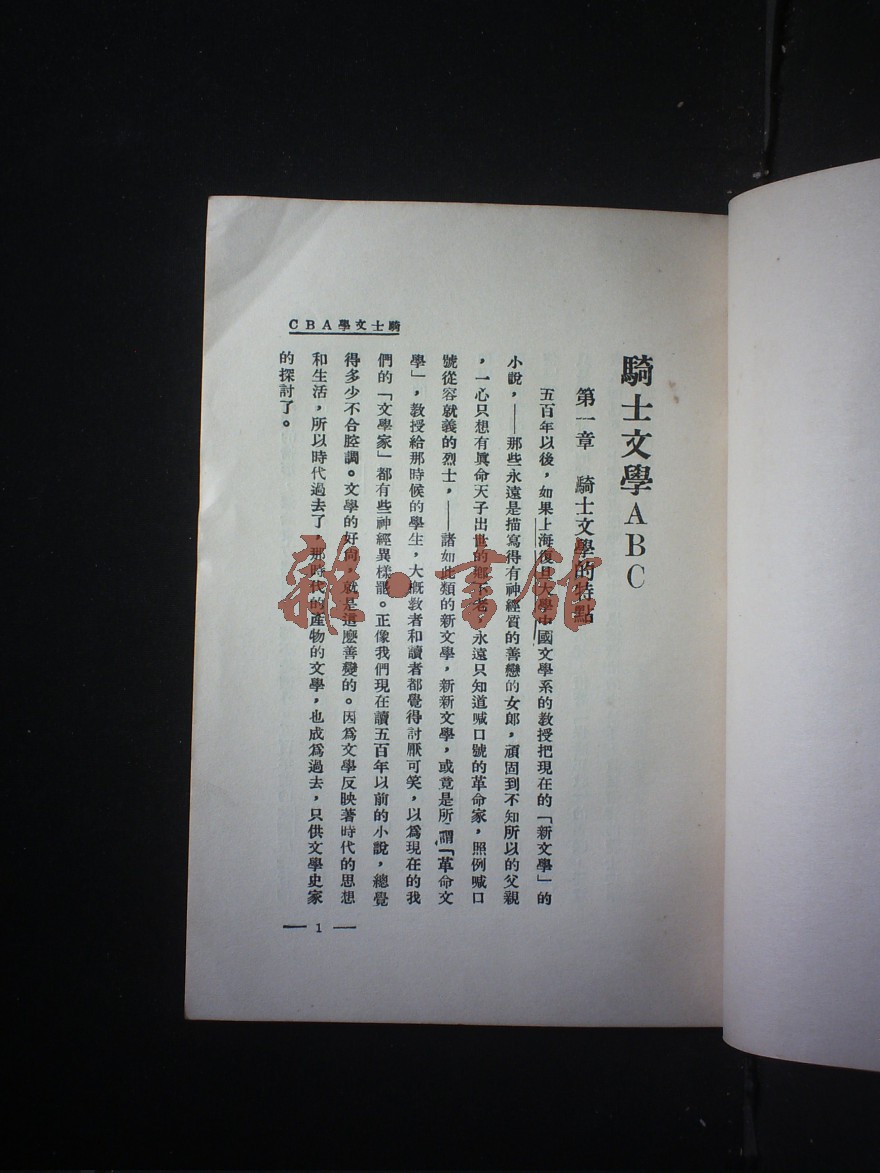 CBA學文士騎
騎士文學ABC
第一章　騎士文學的特點
五百年以後，如果上海復旦大學中國文學系的教授把現在的「新文學」的
小說，——那些永遠是描寫得有神經質的善戀的女郎，頑固到不知所以的父親
，一心只想有眞命天子出世的鄉下老，永遠只知道喊口號的革命家，照例喊口
號從容就義的烈士，——諸如此類的新文學，新新文學，或竟是所謂「革命文
學」，教授給那時候的學生，大概敎者和讀者都覺得討厭可笑，以爲現在的我
們的「文學家」都有些神經異樣罷。正像我們現在讀五百年以前的小說，總覺
得多少不合腔調。文學的好尚，就是這麼善變的。因爲文學反映著時代的思想
和生活，所以時代過去了，那時代的產物的文學，也成爲過去，只供文學史家
的探討了。
— 1 —
雜·書館